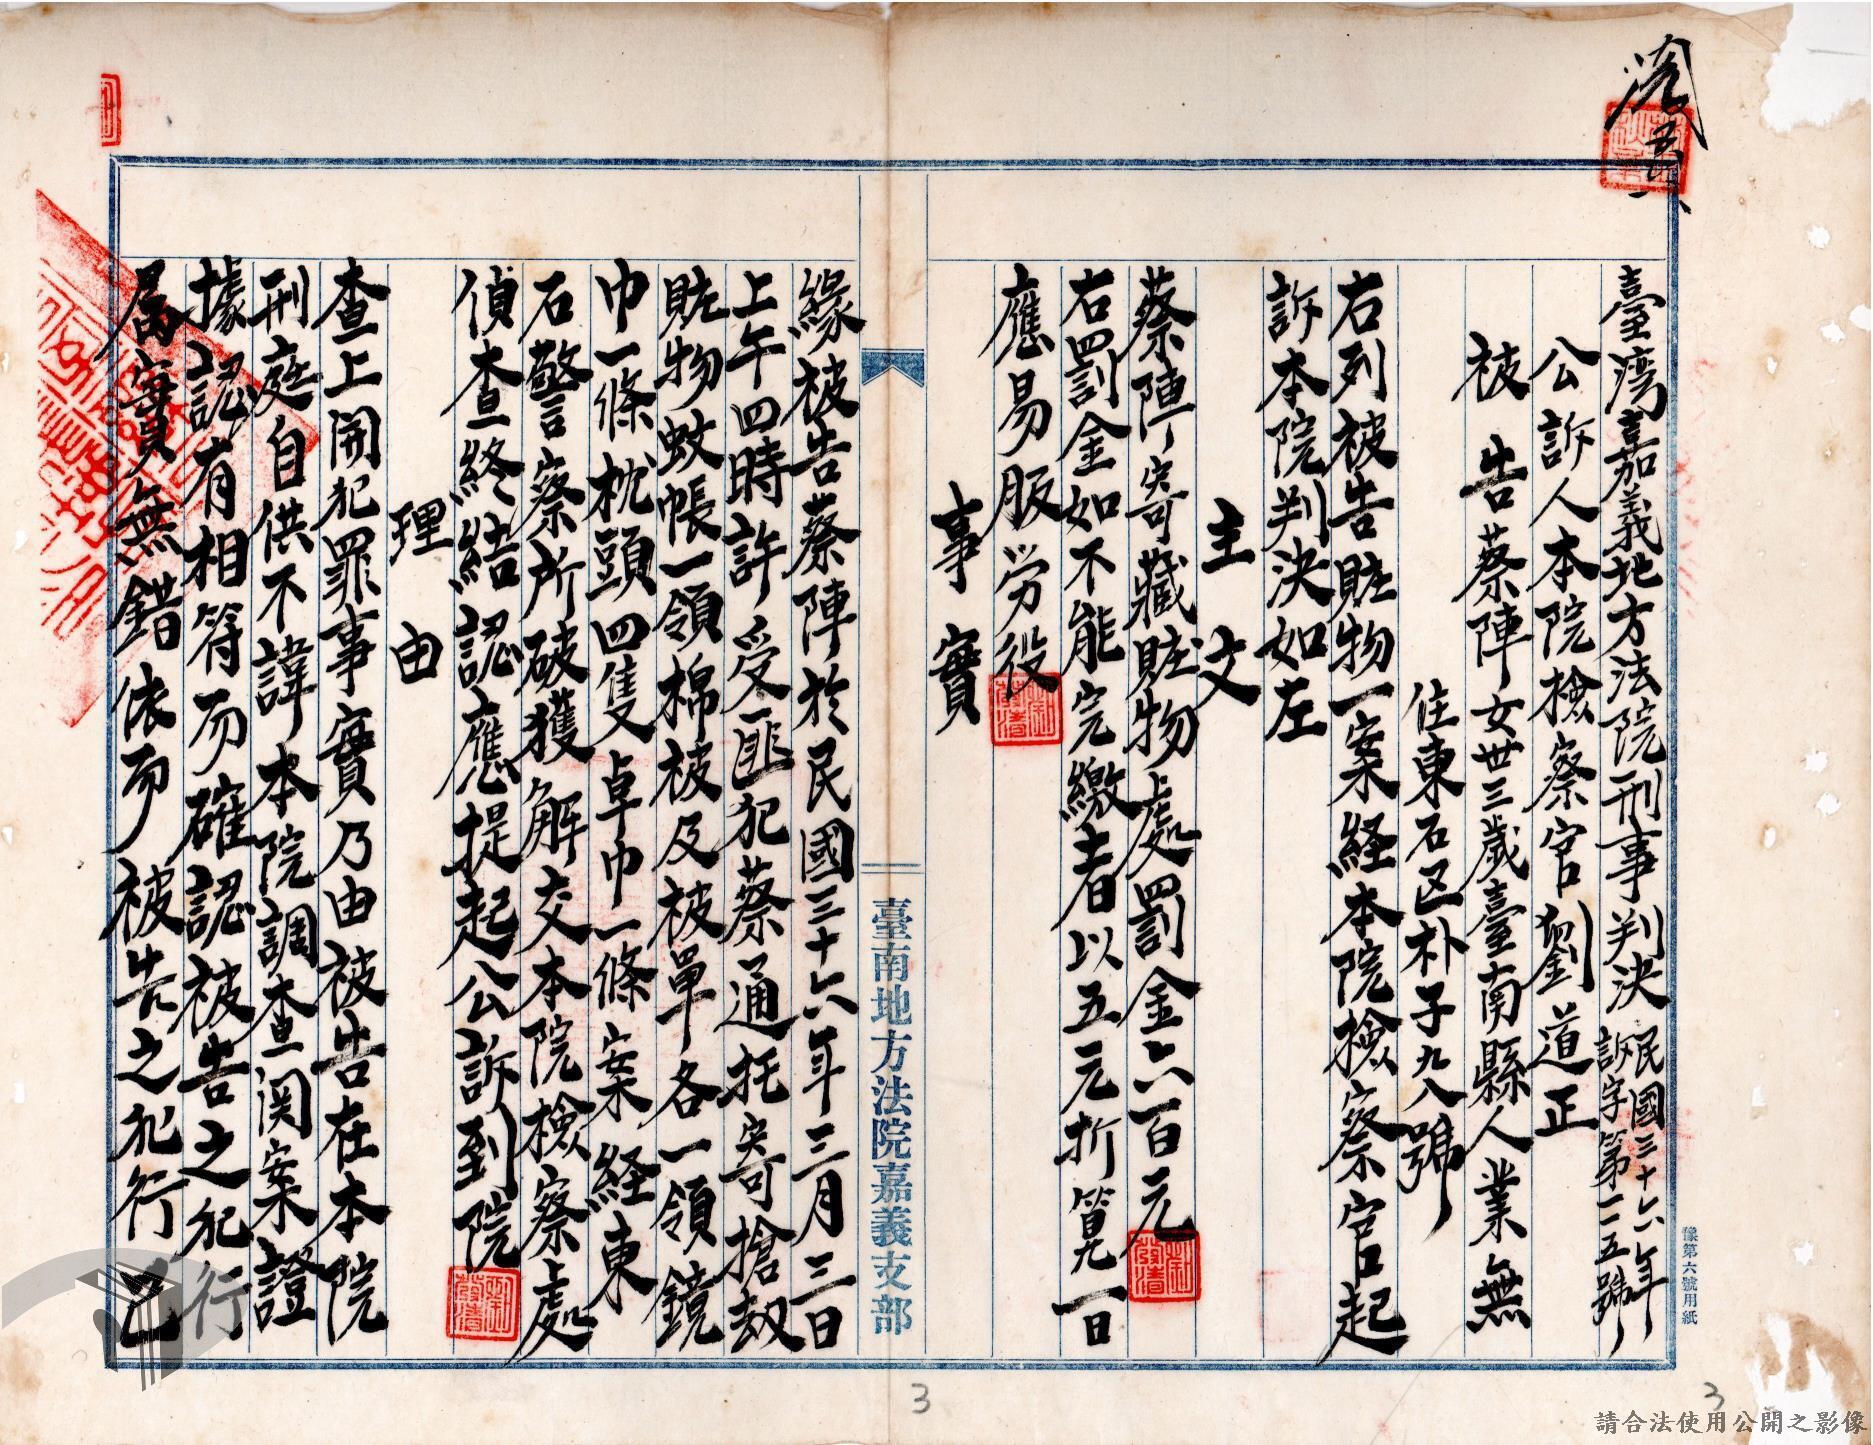 臺湾嘉義地方法院刑事判決 民國三十六年
訴字第一一五號
公訴人本院檢察官劉道正
被告蔡陣女卅三歲臺南縣人業無
住東石区朴子九八號
右列被告賍物一案経本院檢察官起
訴本院判決如左
主文
蔡陣寄藏賍物處罰金六百元
右罰金如不能完繳者以五元折算一日
應易服労役
事實
臺南地方法院嘉義支部
緣被告蔡陣於民國三十六年三月三日
上午四時許受匪犯蔡通托寄搶刼
賍物蚊帳一領棉被及被單各一領鏡
巾一條枕頭四隻卓巾一條案経東
石警察所破獲解交本院檢察處
偵查終結認應提起公訴到院
理由
查上開犯罪事實乃由被告在本院
刑庭自供不諱本院調查関案證
據認有相符而確認被告之犯行
属實無錯依而被告之犯行已
檨第六號用紙
3
3
請合法使用公開之影像